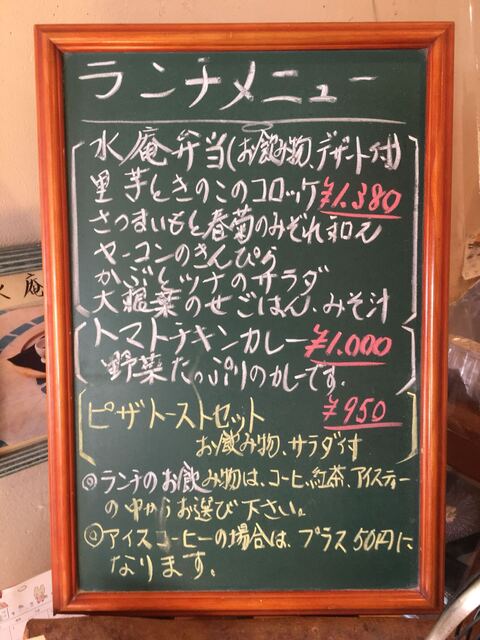 ランチメニュー
水庵弁当(お飲み物、デザート付)
里芋ときのこのコロッケ ¥1.380
さつまいもと春菊のみぞれ和え
ヤーコンのきんぴら
かぶとツナのサラダ
大根葉のせごはん、みそ汁
トマトチキンカレー ¥1.000
野菜たっぷりのカレーです。
ピザトーストセット ¥950
お飲み物、サラダ付
◎ランチのお飲み物は、コーヒ、紅茶、アイスティー
の中からお選び下さい。
◎アイスコーヒーの場合は、プラス50円に
なります。
水庵